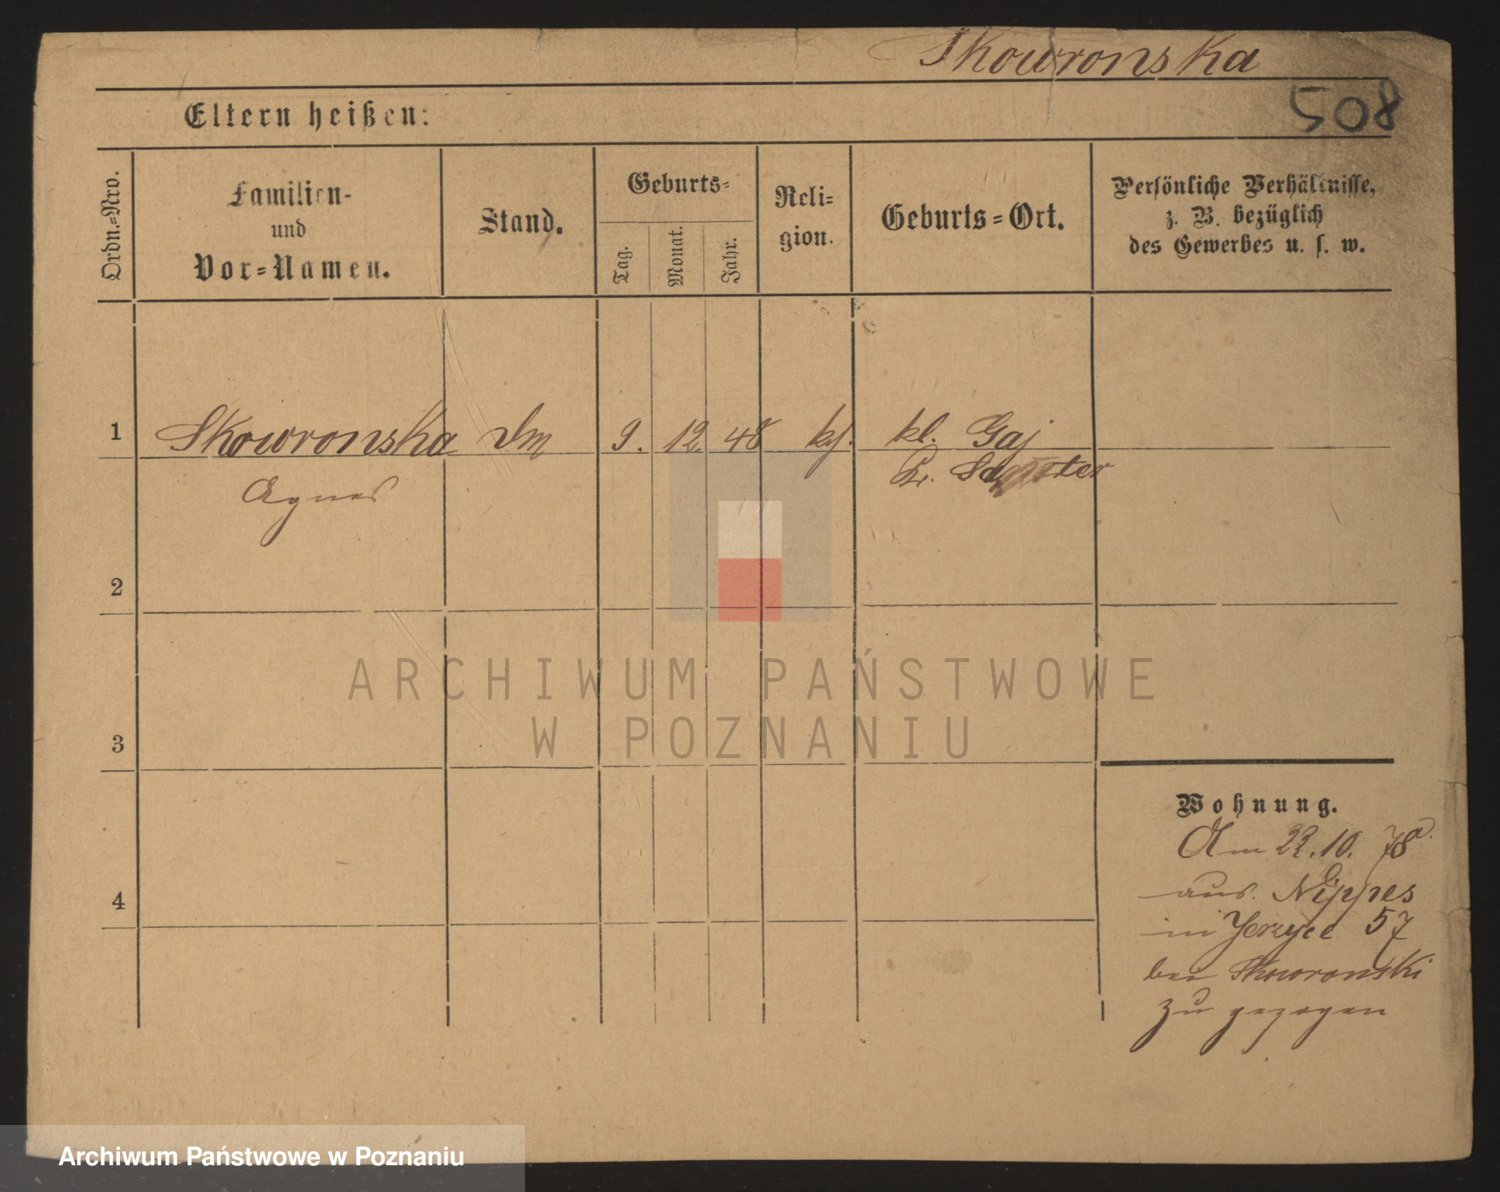 Skowronska
508
Eltern heißen:
Ordn.=Nro.
Familien-
und
Vor=Namen.
Stand.
Geburts=
Tag.
Monat.
Jahr.
Reli=
gion.
Geburts=Ort.
Persönliche Verhältnisse,
z. B. bezüglich
des Gewerbes u. s. w.
1 Skowronska 9. 12. 48 kl. Gaj
Agnes Kr.
2
3
4
Wohnung.
Am 22.10. 78
aus Nippes
in Jerzyce 57
bei Skowronski
zu gezogen
ARCHIWUM PAŃSTWOWE
W POZNANIU
Archiwum Państwowe w Poznaniu